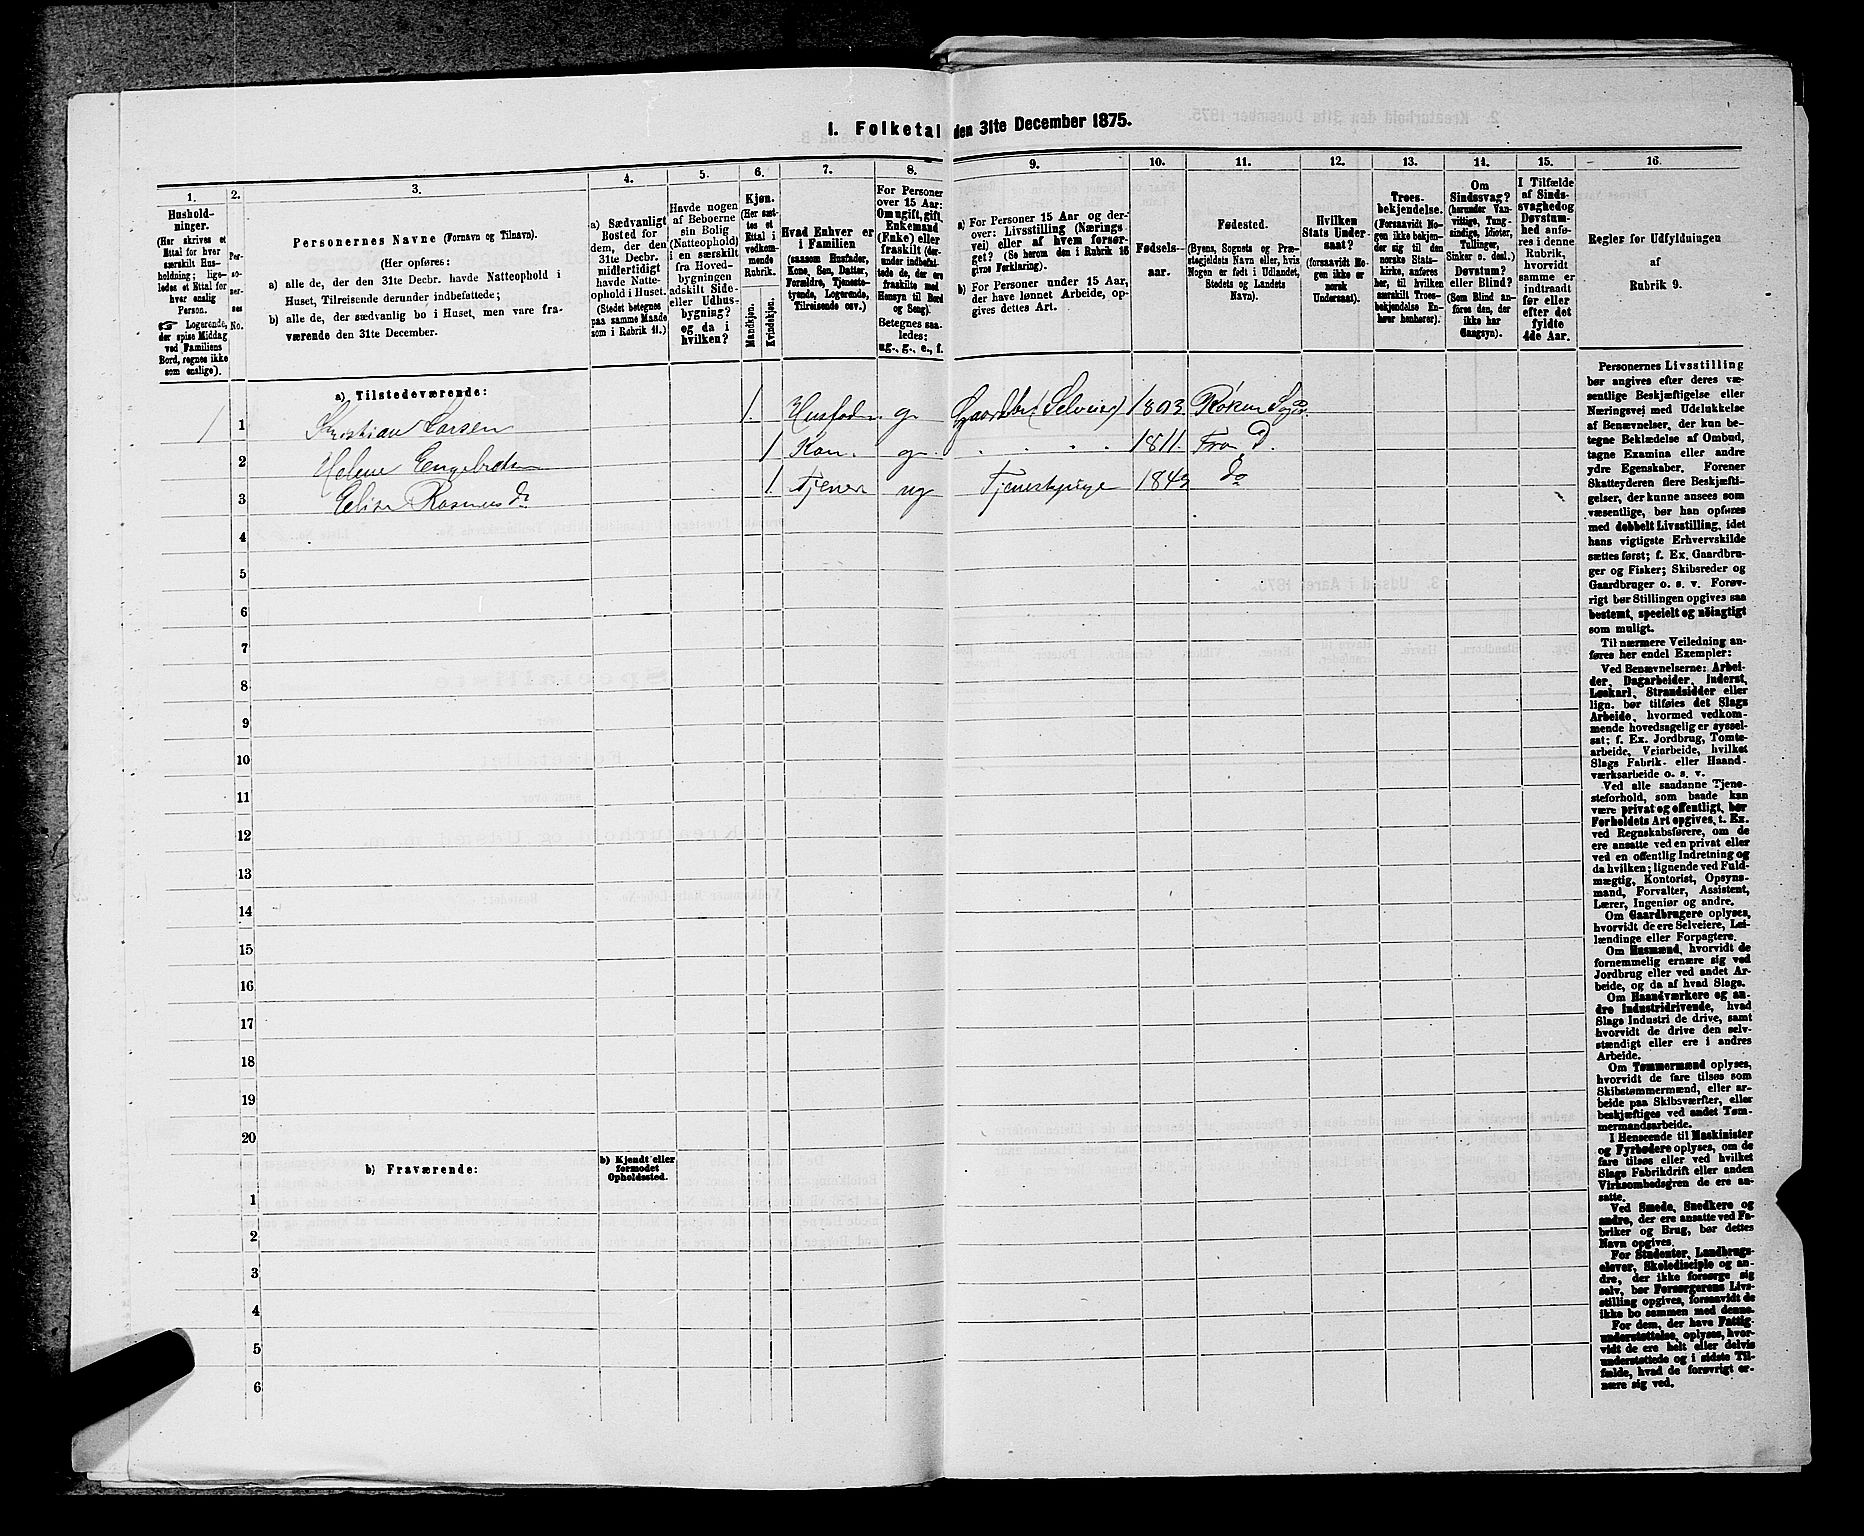 1. Folketal den 31te December 1875.
1. 2. 3. 4. 5. 6. 7. 8. 9. 10. 11. 12. 13. 14. 15. 16.
Hushold-
ninger.
(Her skrives et
Ettal for hver
særskilt Hus-
holdning; lige-
ledes et Ettal for
hver enslig
Person.
☞ Logerende,
der spise Middag
ved Familiens
Bord, regnes ikke
som enslige).
Per-
so-
ner-
nes
No.
Personernes Navne (Fornavn og Tilnavn).
(Her opføres:
a) alle de, der den 31te Decbr. havde Natteophold i
Huset, Tilreisende derunder indbefattede;
b) alle de, der sædvanlig bo i Huset, men vare fra-
værende den 31te December.
a) Sædvanligt
Bosted for
dem, der den
31te Decbr.
midlertidigt
havde Natte-
ophold i Huset.
(Stedet betegnes
paa samme Maade
som i Rubrik 11.)
Havde nogen
af Beboerne
sin Bolig
(Natteophold)
i en særskilt
fra Hoved-
bygningen
adskilt Side-
eller Udhus-
bygning?
og da i
hvilken?
Kjøn.
(Her sæt-
tes et
Ettal i
vedkom-
mende
Rubrik.
Mandkjøn.
Kvindekjøn.
Hvad Enhver er
i Familien
(saasom Husfader,
Kone, Søn, Datter,
Forældre, Tjeneste-
tyende, Logerende,
Tilreisende osv.)
For Personer
over 15 Aar:
Om ugift, gift,
Enkemand
(Enke) eller
fraskilt (der-
under indbefat-
tede de, der ere
fraskilte med
Hensyn til Bord
og Seng).
Betegnes saa-
ledes:
ug., g., e., f.
a) For Personer 15 Aar og der-
over: Livsstilling (Nærings-
vei) eller af hvem forsør-
get? (Se herom den i Rubrik 16
givne Forklaring).
b) For Personer under 15 Aar,
der have lønnet Arbeide, op-
gives dettes Art.
Fødsels-
aar.
Fødested.
(Byens, Sognets og Præ-
stegjeldets Navn eller, hvis
Nogen er født i Udlandet,
Stedets og Landets
Navn).
Hvilken
Stats Under-
saat?
(forsaavidt No-
gen ikke er
norsk
Undersaat).
Troes-
bekjendelse.
(Forsaavidt No-
gen ikke bekjen-
der sig til den
norske Stats-
kirke, anføres
her, til hvilken
særskilt Troes-
bekjendelse En-
hver henhører).
Om
Sindssvag?
(herunder Van-
vittige, Tung-
sindige, Idioter,
Tullinger,
Sinker o. desl.)
Døvstum?
eller Blind?
(Som Blind an-
føres den, der
ikke har
Gangsyn).
I Tilfælde
af Sinds-
svaghed og
Døvstum-
hed anfø-
res i denne
Rubrik,
hvorvidt
samme er
indtraadt
før eller
efter det
fyldte
4de Aar.
Regler for Udfyldningen
af
Rubrik 9.
a) Tilstedeværende:
1 1 Kristian Larsen 1. Husfader g Gaardbr. (Selveier) 1803 Røken Sogn
2 Helene Engebrets. 1 Kon. g. 1811. Fron d.
3 Elise Rasmusd. 1. Tjener ug Tjenestepige 1843 do
4
5
6
7
8
9
10
11
12
13
14
15
16
17
18
19
20
b) Fraværende:
b) Kjendt eller
formodet
Opholdssted.
1
2
3
4
5
6
Personernes Livsstilling
bør angives efter deres væ-
sentlige Beskjæftigelse eller
Næringsvei med Udelukkelse
af Benævnelser, der kun be-
tegne Beklædelse af Ombud,
tagne Examina eller andre
ydre Egenskaber. Forener
Skatteyderen flere Beskjæfti-
gelser, der kunne ansees som
væsentlige, bør han opføres
med dobbelt Livsstilling, idet
hans vigtigste Erhvervskilde
sættes først; f. Ex. Gaardbru-
ger og Fisker; Skibsreder og
Gaardbruger o. s. v. Forøv-
rigt bør Stillingen opgives saa
bestemt, specielt og nöiagtigt
som muligt.
Til nærmere Veiledning an-
føres her endel Exempler:
Ved Benævnelserne: Arbei-
der, Dagarbeider, Inderst,
Løskarl, Strandsidder eller
lign. bør tilføies det Slags
Arbeide, hvormed vedkom-
mende hovedsagelig er syssel-
sat; f. Ex. Jordbrug, Tomte-
arbeide, Veiarbeide, hvilket
Slags Fabrik- eller Haand-
værksarbeide o. s. v.
Ved alle saadanne Tjene-
steforhold, som baade kan
være privat og offentligt, bør
Forholdets Art opgives, t. Ex.
ved Regnskabsførere, om de
ere ansatte ved en privat eller
ved en offentlig Indretning og
da hvilken; lignende ved Fuld-
mægtig, Kontorist, Opsyns-
mand, Forvalter, Assistent,
Lærer, Ingeniør og andre.
Om Gaardbrugere oplyses,
hvorvidt de ere Selveiere, Lei-
lændinge eller Forpagtere.
Om Husmænd, hvorvidt de
fornemmelig ernære sig ved
Jordbrug eller ved andet Ar-
beide, og da af hvad Slags.
Om Haandværkere og an-
dre Industridrivende, hvad
Slags Industri de drive, samt
hvorvidt de drive den selv-
stændigt eller ere i andres
Arbeide.
Om Tømmermænd oplyses,
hvorvidt de fare tilsøs som
Skibstømmermænd, eller ar-
beide paa Skibsværfter, eller
beskjæftiges ved andet Tøm-
mermandsarbeide.
I Henseende til Maskinister
og Fyrbødere oplyses, om de
fare tilsøs eller ved hvilket
Slags Fabrikdrift eller anden
Virksomhedsgren de ere an-
satte.
Ved Smede, Snedkere og
andre, der ere ansatte ved Fa-
briker og Brug, bør dettes
Navn opgives.
For Studenter, Landbrugs-
elever, Skoledisciple og an-
dre, der ikke forsørge sig
selv, bør Forsørgerens Livs-
stilling opgives, forsaavidt de
ikke bo sammen med denne.
For dem, der have Fattig-
understøttelse, oplyses, hvor-
vidt de ere helt eller delvis
understøttede og i sidste Til-
fælde, hvad de forøvrigt er-
nære sig ved.